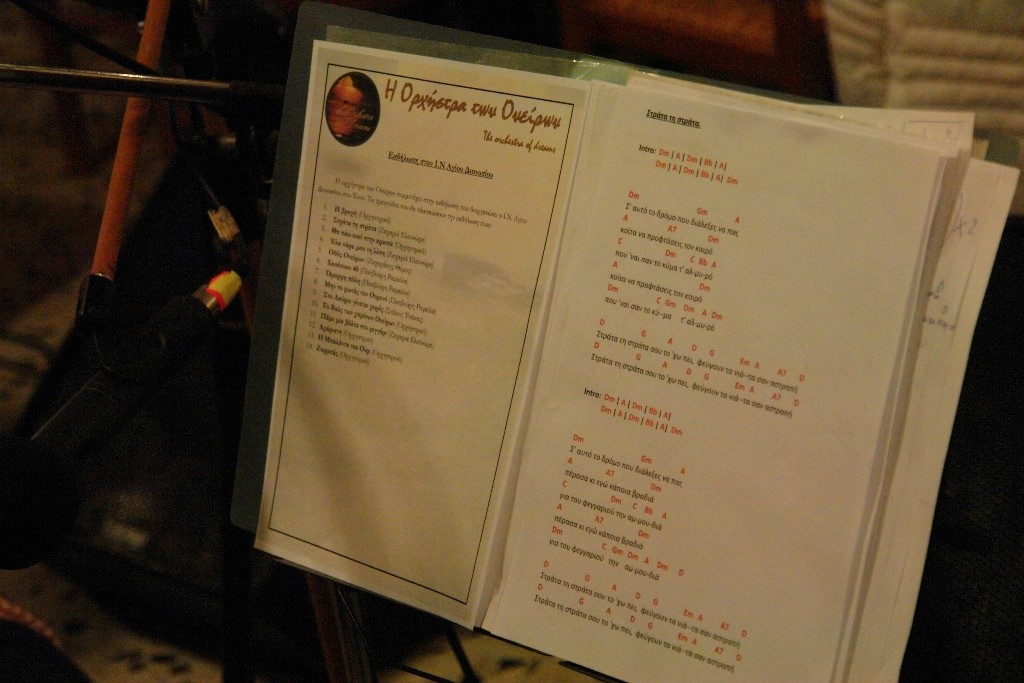 Η Ορχήστρα των Ονείρων
The orchestra of dreams
Εκδήλωση στον Ι.Ν Αγίου Διονυσίου
Η ορχήστρα των Ονείρων συμμετέχει στην εκδήλωση που διοργανώνει ο Ι.Ν. Αγίου
Διονυσίου στο Τα τραγούδια που θα πλαισιώσουν την εκδήλωση είναι:
1. Η βροχή (Ορχηστρικό)
2. Στράτα τη στράτα (Ζαχαρά Ελεονώρα)
3. Θα πάω εκεί στην αραπιά (Ορχηστρικό)
4. Έλα πάρε μου τη λύπη (Ζαχαρά Ελεονώρα)
5. Οδός Ονείρων
6.
7. Όμορφη πόλη
8. Μην τον ρωτάς τον Ουρανό
9. Στη
10. Το βαλς των χαμένων Ονείρων (Ορχηστρικό)
11. Πάμε μια βόλτα στο φεγγάρι (Ζαχαρά Ελεονώρα)
12. (Ορχηστρικό)
13. Η Μπαλάντα του Ούρι (Ορχηστρικό)
14. (Ορχηστρικό)
Στράτα τη στράτα
Intro: Dm | A | Dm | Bb | A|
Dm | A | Dm | Bb | A| Dm
Dm Gm A
Σ' αυτό το δρόμο που διάλεξες να πας
A A7 Dm
κοίτα να προφτάσεις τον καιρό
C Dm C Bb A
που 'ναι σαν το κύμα τ' αλ-μυ-ρό
A Dm
κοίτα να προφτάσεις τον καιρό
Dm C Gm Dm A Dm
που 'ναι σαν το κύ--μα τ' αλ-μυ-ρό
D G A D G Em A A7 D
Στράτα τη στράτα σου το 'χω πει, φεύγουν τα νιά--τα σαν αστραπή
D G A D G Em A A7 D
Στράτα τη στράτα σου το 'χω πει, φεύγουν τα νιά--τα σαν αστραπή
Intro: Dm | A | Dm | Bb | A|
Dm | A | Dm | Bb | A| Dm
Dm Gm A
Σ' αυτό το δρόμο που διάλεξες να πας
A A7 Dm
πέρασα κι εγώ κάποια βραδιά
C Dm C Bb A
για του φεγγαριού την αμ-μου-διά
A A7 Dm
πέρασα κι εγώ κάποια βραδιά
Dm C Gm Dm A Dm D
για του φεγγαριού την αμ-μου-διά
D G A D G Em A A7 D
Στράτα τη στράτα σου το 'χω πει, φεύγουν τα νιά--τα σαν αστραπή
D G A D G Em A A7 D
Στράτα τη στράτα σου το 'χω πει, φεύγουν τα νιά--τα σαν αστραπή
x2